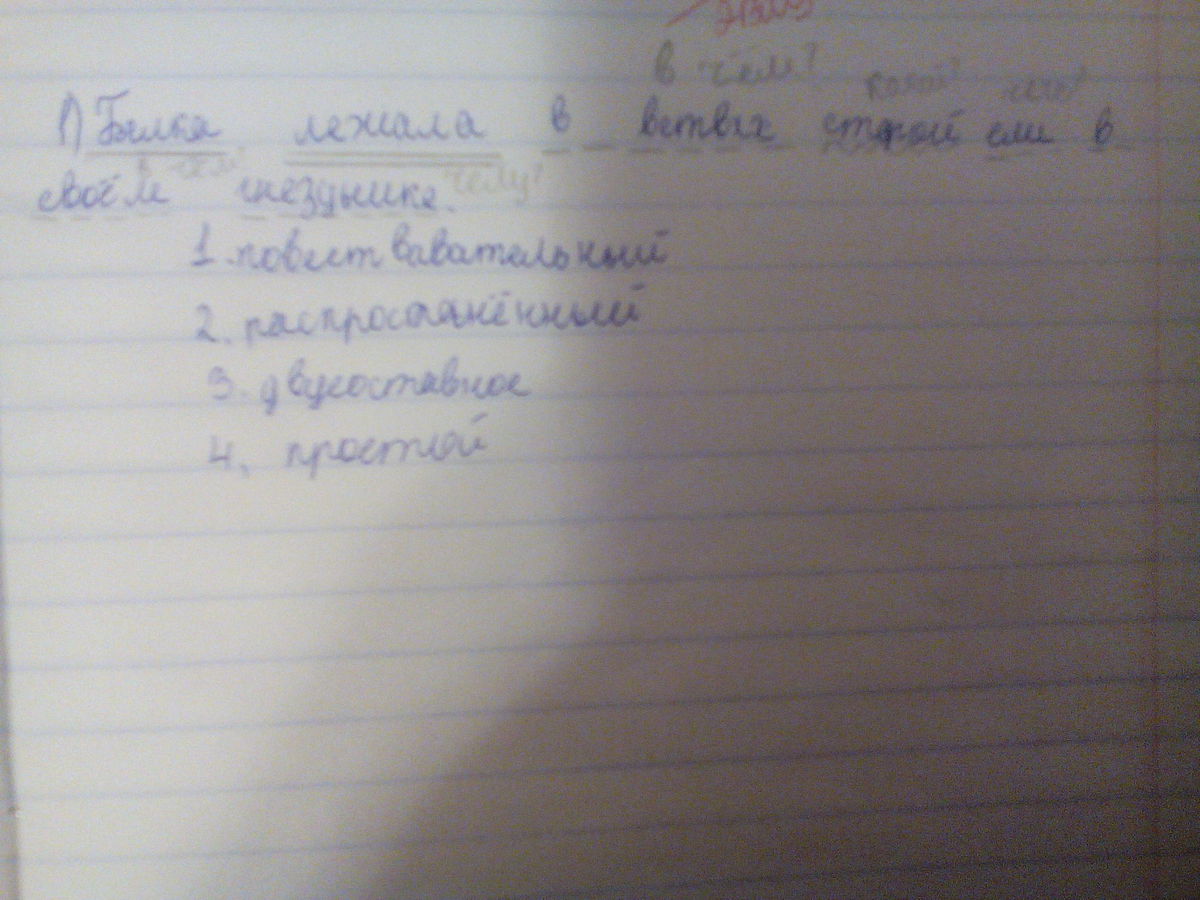 в чём?
какой?
1) Белка лежала в ветвях старой ели в
в чём? чему?
своём гнёздышке.
1. повествавательный
2. распространённый
3. двусоставное
4. простой